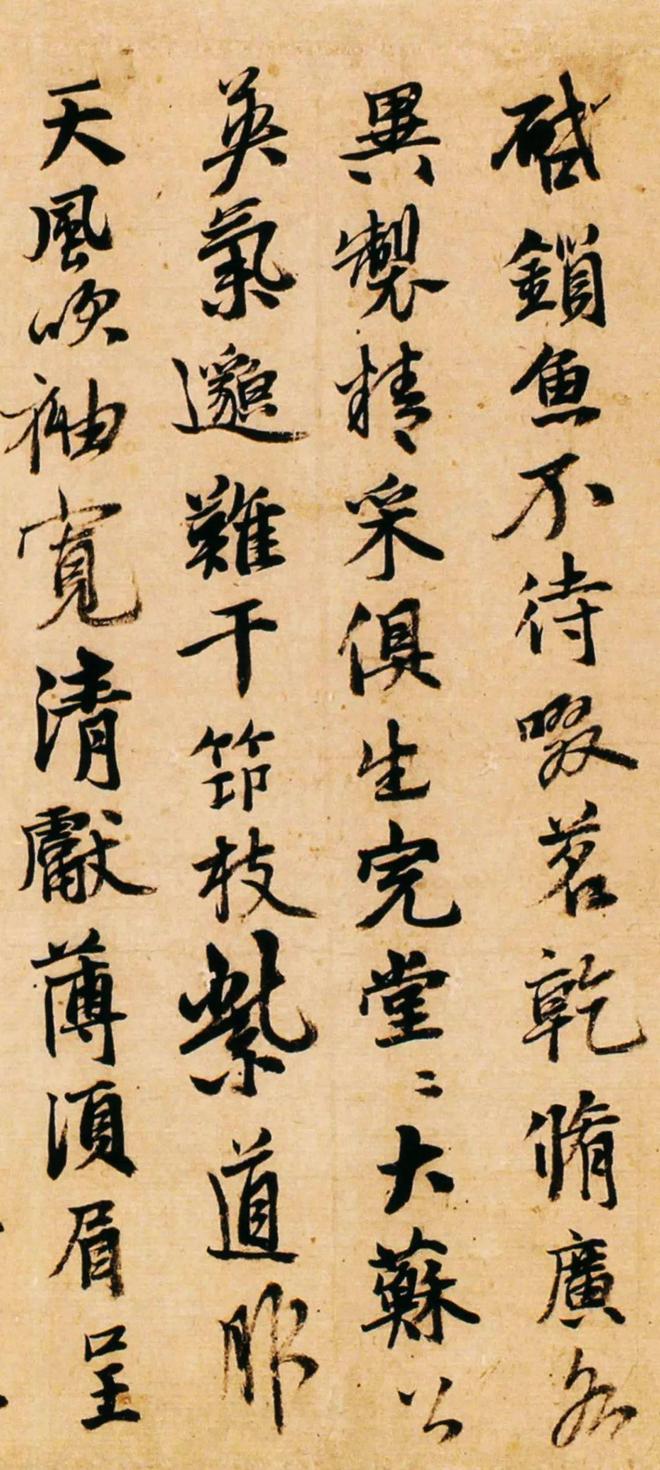 啟鎖魚不待啜茗乾脩廣各
異製精采俱生完堂〻大蘇公
英氣邈難干笻枝紫道服
天風吹袖寬清獻薄須眉呈